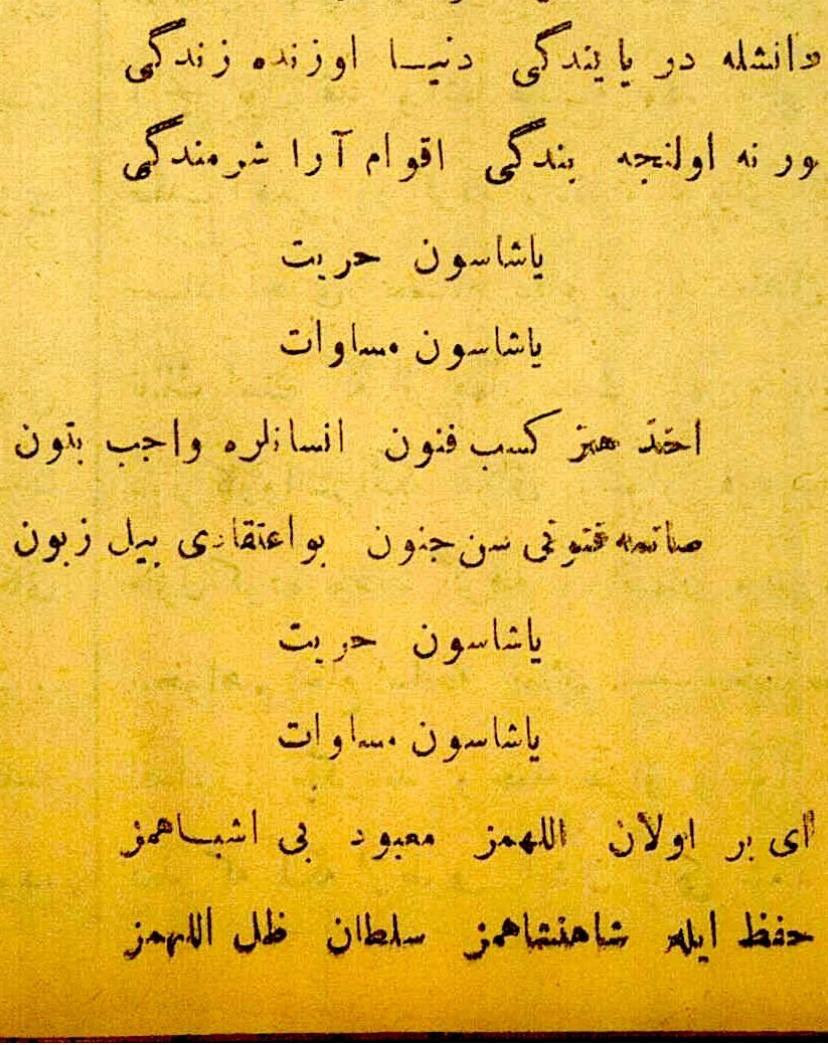 دانشله در پایندگی دنیـا اوزنده زندگی
ور نه اولنجه بندگی اقوام آرا شرمندگی
یاشاسون حریت
یاشاسون مساوات
اخذ هنر کسب فنون انسانلره واجب بتون
صانمه فنونی سن جنون بو اعتقادی بیل زبون
یاشاسون حریت
یاشاسون مساوات
ای بر اولان اللهمز معبود بی اشبـاهمز
حفظ ایله شاهنشاهمز سلطان ظل اللهمز